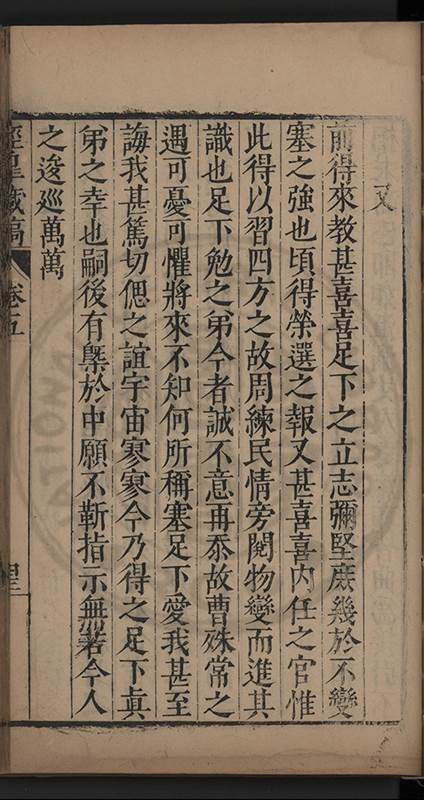 又
前得來教甚喜喜足下之立志彌堅庶幾於不變
塞之強也頃得榮選之報又甚喜喜内任之官惟
此得以習四方之故周練民情旁閱物變而進其
識也足下勉之弟今者誠不意再忝故曹殊常之
遇可憂可懼將來不知何所稱塞足下愛我甚至
誨我甚篤切偲之誼宇宙寥寥今乃得之足下眞
弟之幸也嗣後有槩於中願不靳指示無若今人
之逡巡萬萬
涇臯藏稿 卷五